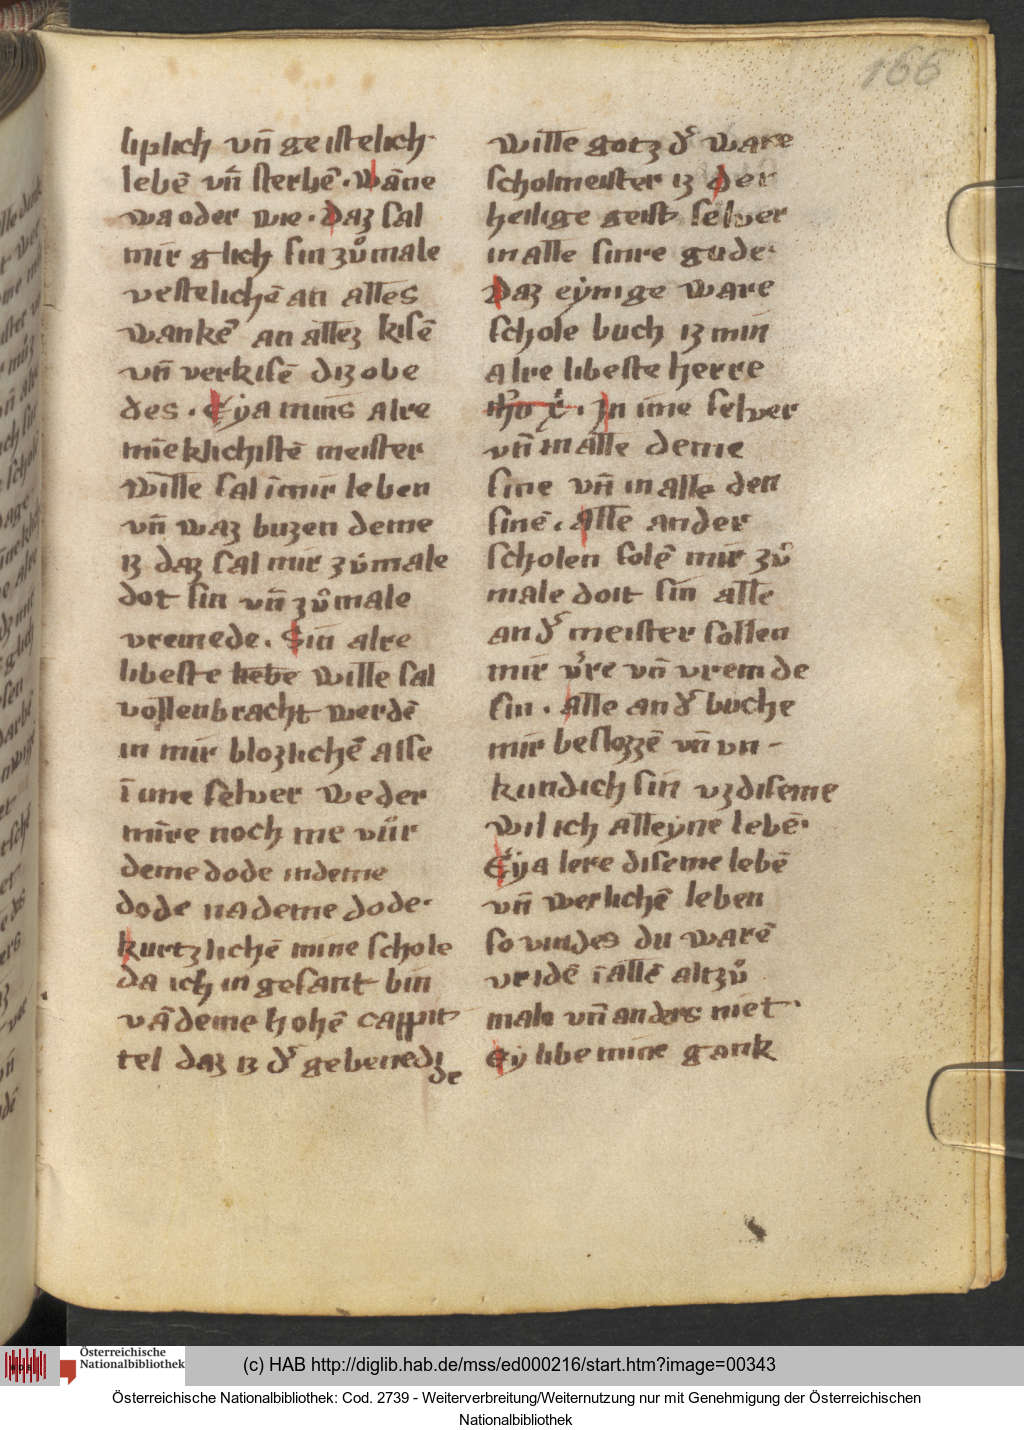 166
liplich vn̄ geistelich·
lebē vn̄ sterbē · Wāne
wa oder wie · Daz sal
mir glich sin zůmale
vestelichē an alles
wankē an allez kisē
vn̄ verkisē diz obe
des · Eya mins alre
mīneklichistē meister
wille sal ī mir leben
vn̄ waz buzen deme
iz daz sal mir zůmale
dot sin vn̄ zůmale
vremede · Sin alre
libeste liebe wille sal
vollenbracht werdē
in mir blozlichē alse
ī ime selver weder
mīre noch me vůr
deme dode in deme
dode na deme dode·
kurtzlichē mine schole
da ich in gesant bin
vā deme hohē cappit
tel daz iz dˢ gebenedi
de
wille gotz dˢ ware
scholmeister iz der
heilige geist selver
in alle sinre gude·
Daz eynige ware
schole buch iz min
alre libeste herre
ih̄u x̄ · In ime selver
vn̄ in alle deme
sine vn̄ in alle den
sinē · Alle ander
scholen solē mir zů
male doit sin alle
andˢ meister sollen
mir vˢre vn̄ vremde
sin · Alle andˢ buche
mir beslozzē vn̄ vn-
kundich sin vz diseme
wil ich alleyne lebē·
Eya lere diseme lebē
vn̄ werlichē leben
so vindes du warē
vridē ī allē altzů
male vn̄ anders niet·
Ey libe mine gank
(c) HAB http://diglib.hab.de/mss/ed000216/start.htm?image=00343
Österreichische
Nationalbibliothek
Österreichische Nationalbibliothek: Cod. 2739 - Weiterverbreitung/Weiternutzung nur mit Genehmigung der Österreichischen
Nationalbibliothek